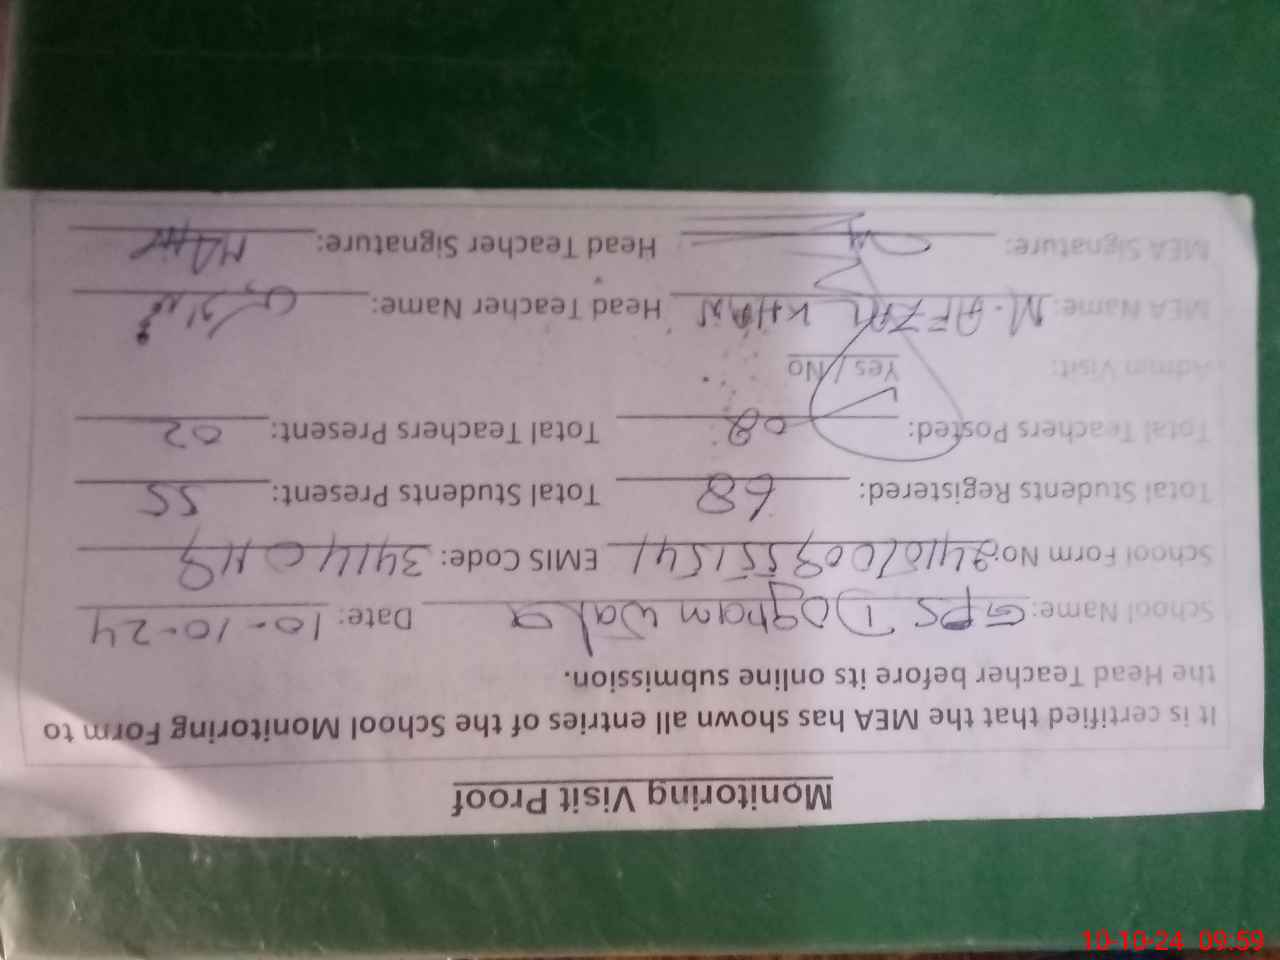 Monitoring Visit Proof
It is certified that the MEA has shown all entries of the School Monitoring Form to
the Head Teacher before its online submission.
School Name: GPS Dogham wala Date: 10-10-24
School Form No: EMIS Code:
Total Students Registered: 68 Total Students Present: 55
Total Teachers Posted: Total Teachers Present: 02
Admin Visit: Yes / No
MEA Name: M. AFZAL KHAN Head Teacher Name:
MEA Signature: Head Teacher Signature:
10-10-24 09:59